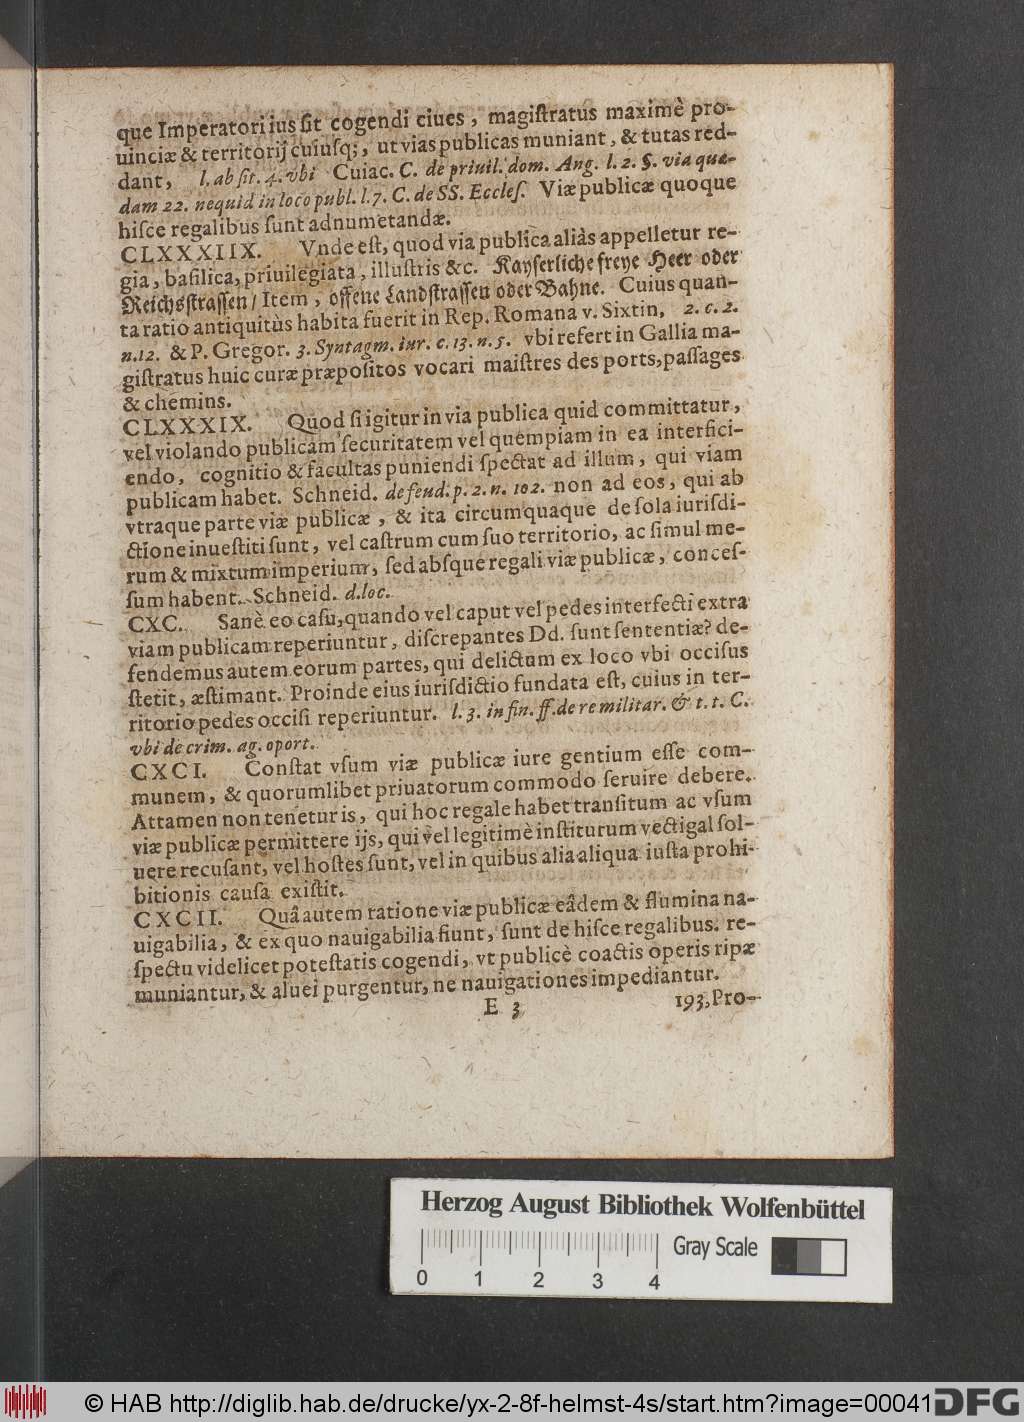 que Imperatori ius ſit cogendi ciues, magiſtratus maximè pro-
uinciæ & territorij cuiuſq;, ut vias publicas muniant, & tutas red-
dant, l. ab ſit. 4. vbi Cuiac. C. de priuil. dom. Ang. l. 2. §. via quæ-
dam 22. nequid in loco publ. l. 7. C. de SS. Eccleſ. Viæ publicæ quoque
hiſce regalibus ſunt adnumetandæ.
CLXXXIIX. Vnde eſt, quod via publica aliàs appelletur re-
gia, baſilica, priuilegiata, illuſtris &c. Kayſerliche freye Heer oder
Reichsſtraſſen/ Item, offene Landſtraſſen oder Bahne. Cuius quan-
ta ratio antiquitùs habita fuerit in Rep. Romana v. Sixtin, 2. c. 2.
n. 12. & P. Gregor. 3. Syntagm. iur. c. 13. n. 5. vbi refert in Gallia ma-
giſtratus huic curæ præpoſitos vocari maiſtres des ports, paſſages
& chemins.
CLXXXIX. Quod ſi igitur in via publica quid committatur,
vel violando publicam ſecuritatem vel quempiam in ea interfici-
endo, cognitio & facultas puniendi ſpectat ad illum, qui viam
publicam habet. Schneid. de feud. p. 2. n. 102. non ad eos, qui ab
vtraque parte viæ publicæ, & ita circumquaque de ſola iuriſdi-
ctione inueſtiti ſunt, vel caſtrum cum ſuo territorio, ac ſimul me-
rum & mixtum imperium, ſed abſque regali viæ publicæ, conceſ-
ſum habent. Schneid. d. loc.
CXC. Sanè eo caſu, quando vel caput vel pedes interfecti extra
viam publicam reperiuntur, diſcrepantes Dd. ſunt ſententiæ? de-
fendemus autem eorum partes, qui delictum ex loco vbi occiſus
ſtetit, æſtimant. Proinde eius iurisdictio fundata eſt, cuius in ter-
ritorio pedes occiſi reperiuntur. l. 3. in fin. ff. de re militar. & t. t. C.
vbi de crim. ag. oport.
CXCI. Conſtat vſum viæ publicæ iure gentium eſſe com-
munem, & quorumlibet priuatorum commodo ſeruire debere.
Attamen non tenetur is, qui hoc regale habet tranſitum ac vſum
viæ publicæ permittere ijs, qui vel legitimè inſtitutum vectigal ſol-
uere recuſant, vel hoſtes ſunt, vel in quibus alia aliqua iuſta prohi-
bitionis cauſa exiſtit.
CXCII. Quâ autem ratione viæ publicæ eâdem & flumina na-
uigabilia, & ex quo nauigabilia fiunt, ſunt de hiſce regalibus. re-
ſpectu videlicet poteſtatis cogendi, vt publicè coactis operis ripæ
muniantur, & aluei purgentur, ne nauigationes impediantur.
E 3 193, Pro-
Herzog August Bibliothek Wolfenbüttel
Gray Scale
0 1 2 3 4
© HAB http://diglib.hab.de/drucke/yx-2-8f-helmst-4s/start.htm?image=00041
DFG